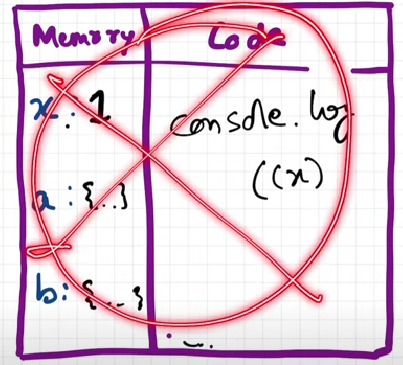 Memory Code
x: 1
console.log
((x)
a: {...}
b: {...}